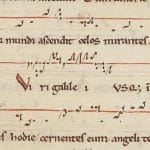 mundi ascendit celos mirantes
Viri galile i usq; i
hodie cernentes eum angeli te